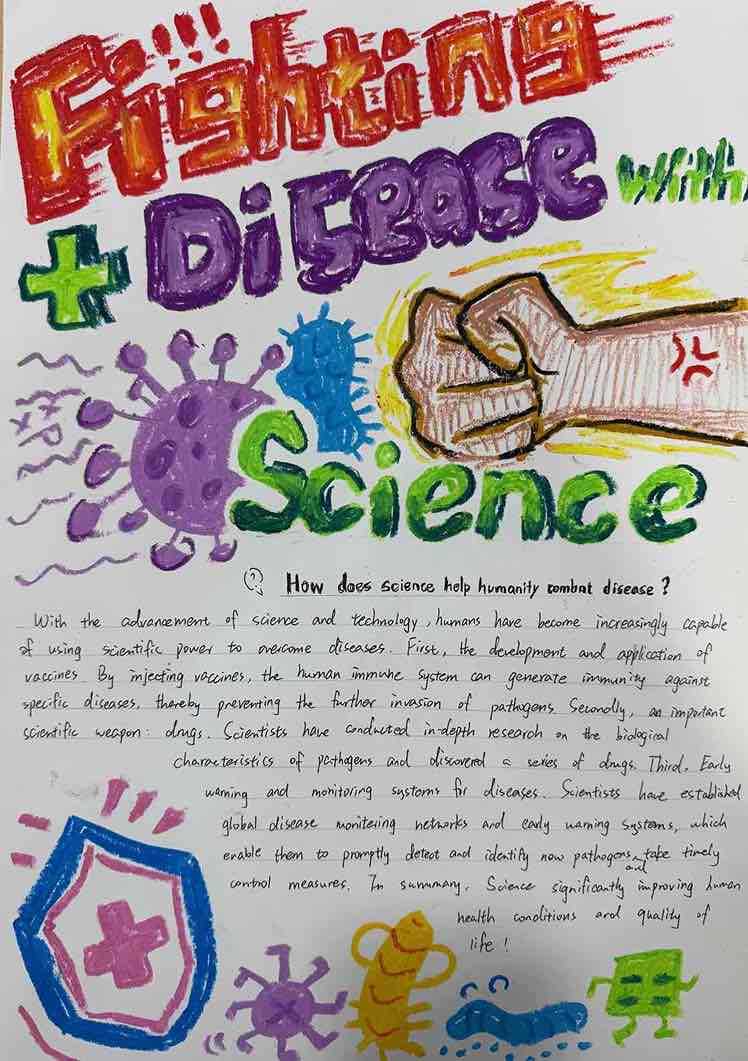 Fighting
!!!
Disease With
Science
? How does science help humanity combat disease ?
With the advancement of science and technology, humans have become increasingly capable
of using scientific power to overcome diseases. First, the development and application of
vaccines By injecting vaccines, the human immune system can generate immunity against
specific diseases, thereby preventing the further invasion of pathogens. Secondly, an important
scientific weapon: drugs. Scientists have conducted in-depth research on the biological
characteristics of pathogens and discovered a series of drugs. Third, Early
warning and monitoring systems for diseases. Scientists have established
global disease monitoring networks and early warning systems, which
enable them to promptly detect and identify new pathogens and take timely
control measures. In summary, Science significantly improving human
health conditions and quality of
life !